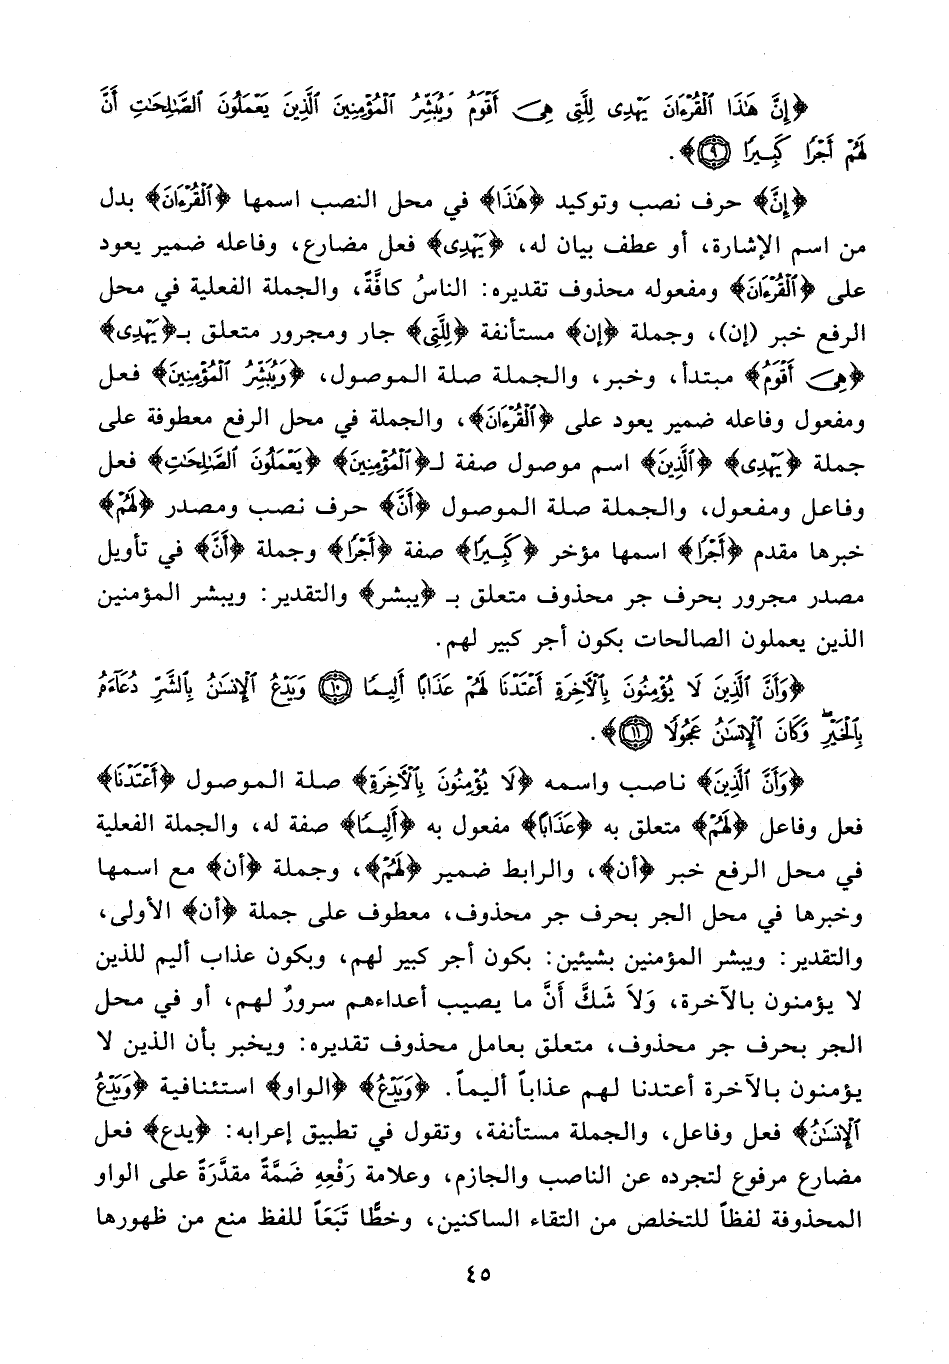 ﴿إِنَّ هَٰذَا ٱلْقُرْءَانَ يَهْدِى لِلَّتِى هِىَ أَقْوَمُ وَيُبَشِّرُ ٱلْمُؤْمِنِينَ ٱلَّذِينَ يَعْمَلُونَ ٱلصَّٰلِحَٰتِ أَنَّ
لَهُمْ أَجْرًا كَبِيرًا ۝٩﴾.
﴿إِنَّ﴾ حرف نصب وتوكيد ﴿هَٰذَا﴾ في محل النصب اسمها ﴿ٱلْقُرْءَانَ﴾ بدل
من اسم الإشارة، أو عطف بيان له، ﴿يَهْدِى﴾ فعل مضارع، وفاعله ضمير يعود
على ﴿ٱلْقُرْءَانَ﴾ ومفعوله محذوف تقديره: الناسُ كافَّةً، والجملة الفعلية في محل
الرفع خبر (إن)، وجملة ﴿إن﴾ مستأنفة ﴿لِلَّتِى﴾ جار ومجرور متعلق بـ﴿يَهْدِى﴾
﴿هِىَ أَقْوَمُ﴾ مبتدأ، وخبر، والجملة صلة الموصول، ﴿وَيُبَشِّرُ ٱلْمُؤْمِنِينَ﴾ فعل
ومفعول وفاعله ضمير يعود على ﴿ٱلْقُرْءَانَ﴾، والجملة في محل الرفع معطوفة على
جملة ﴿يَهْدِى﴾ ﴿ٱلَّذِينَ﴾ اسم موصول صفة لـ﴿ٱلْمُؤْمِنِينَ﴾ ﴿يَعْمَلُونَ ٱلصَّٰلِحَٰتِ﴾ فعل
وفاعل ومفعول، والجملة صلة الموصول ﴿أَنَّ﴾ حرف نصب ومصدر ﴿لَهُمْ﴾
خبرها مقدم ﴿أَجْرًا﴾ اسمها مؤخر ﴿كَبِيرًا﴾ صفة ﴿أَجْرًا﴾ وجملة ﴿أَنَّ﴾ في تأويل
مصدر مجرور بحرف جر محذوف متعلق بـ ﴿يبشر﴾ والتقدير: ويبشر المؤمنين
الذين يعملون الصالحات بكون أجر كبير لهم.
﴿وَأَنَّ ٱلَّذِينَ لَا يُؤْمِنُونَ بِٱلْءَاخِرَةِ أَعْتَدْنَا لَهُمْ عَذَابًا أَلِيمًا ۝١٠ وَيَدْعُ ٱلْإِنسَٰنُ بِٱلشَّرِّ دُعَآءَهُۥ
بِٱلْخَيْرِ ۖ وَكَانَ ٱلْإِنسَٰنُ عَجُولًا ۝١١﴾.
﴿وَأَنَّ ٱلَّذِينَ﴾ ناصب واسمه ﴿لَا يُؤْمِنُونَ بِٱلْءَاخِرَةِ﴾ صلة الموصول ﴿أَعْتَدْنَا﴾
فعل وفاعل ﴿لَهُمْ﴾ متعلق به ﴿عَذَابًا﴾ مفعول به ﴿أَلِيمًا﴾ صفة له، والجملة الفعلية
في محل الرفع خبر ﴿أن﴾، والرابط ضمير ﴿لَهُمْ﴾، وجملة ﴿أن﴾ مع اسمها
وخبرها في محل الجر بحرف جر محذوف، معطوف على جملة ﴿أن﴾ الأولى،
والتقدير: ويبشر المؤمنين بشيئين: بكون أجر كبير لهم، وبكون عذاب أليم للذين
لا يؤمنون بالآخرة، وَلاَ شَكَّ أَنَّ ما يصيب أعداءهم سرورٌ لهم، أو في محل
الجر بحرف جر محذوف، متعلق بعامل محذوف تقديره: ويخبر بأن الذين لا
يؤمنون بالآخرة أعتدنا لهم عذاباً أليماً. ﴿وَيَدْعُ﴾ ﴿الواو﴾ استئنافية ﴿وَيَدْعُ
ٱلْإِنسَٰنُ﴾ فعل وفاعل، والجملة مستأنفة، وتقول في تطبيق إعرابه: ﴿يدع﴾ فعل
مضارع مرفوع لتجرده عن الناصب والجازم، وعلامة رَفْعِهِ ضَمَّةٌ مقدَّرَةٌ على الواو
المحذوفة لفظاً للتخلص من التقاء الساكنين، وخطًّا تَبَعَاً للفظ منع من ظهورها
٤٥